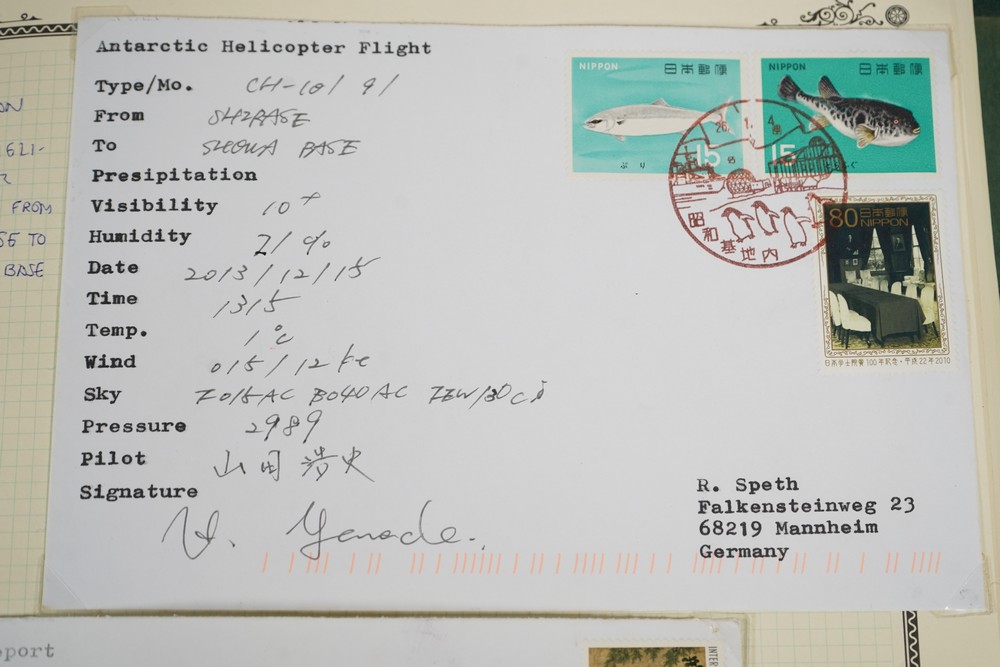 Antarctic Helicopter Flight
Type/Mo. CH-101 91
From
To SHOWA BASE
Presipitation
Visibility 10+
Humidity 21%
Date 2013/12/15
Time 1315
Temp. 1°C
Wind 015/12kt
Sky
Pressure 2989
Pilot 山田
Signature
NIPPON 日本郵便
ぶり 15
NIPPON 日本郵便
15
26. 1. 4
昭和基地内
80 日本郵便
NIPPON
日本学士院賞100年記念・平成22年2010
R. Speth
Falkensteinweg 23
68219 Mannheim
Germany
FROM
TO
BASE
eport
INTER